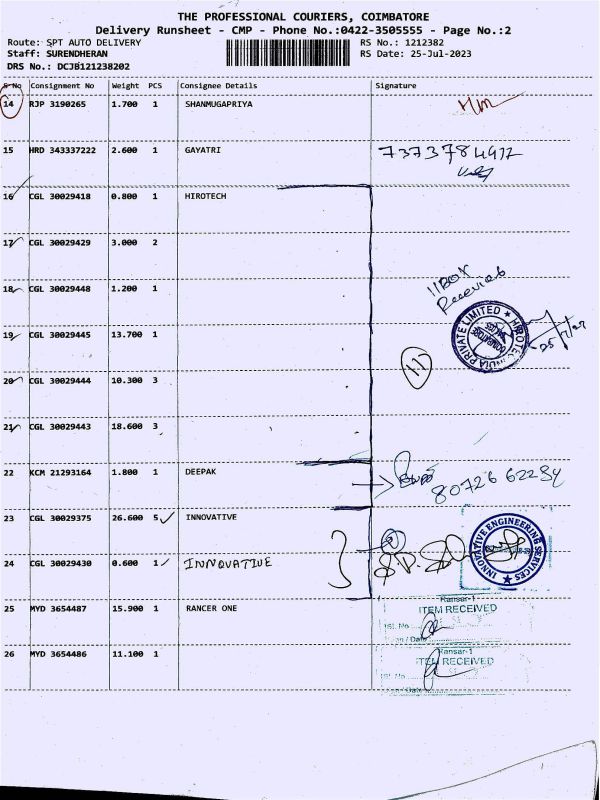 THE PROFESSIONAL COURIERS, COIMBATORE
Delivery Runsheet - CMP - Phone No.:0422-3505555 - Page No.:2
Route: SPT AUTO DELIVERY RS No.: 1212382
Staff: SURENDHERAN RS Date: 25-Jul-2023
DRS No.: DCJB121238202
S No Consignment No Weight PCS Consignee Details Signature
14 RJP 3190265 1.700 1 SHANMUGAPRIYA
15 HRD 343337222 2.600 1 GAYATRI
16 CGL 30029418 0.800 1 HIROTECH
17 CGL 30029429 3.000 2
18 CGL 30029448 1.200 1
11 BOX
Received
19 CGL 30029445 13.700 1
11
20 CGL 30029444 10.300 3
21 CGL 30029443 18.600 3
22 KCM 21293164 1.800 1 DEEPAK
23 CGL 30029375 26.600 5 INNOVATIVE
INNOVATIVE ENGINEERING SERVICES
24 CGL 30029430 0.600 1 INNOVATIVE
25 MYD 3654487 15.900 1 RANCER ONE
Ransar-1
ITEM RECEIVED
26 MYD 3654486 11.100 1
Ransar-1
ITEM RECEIVED